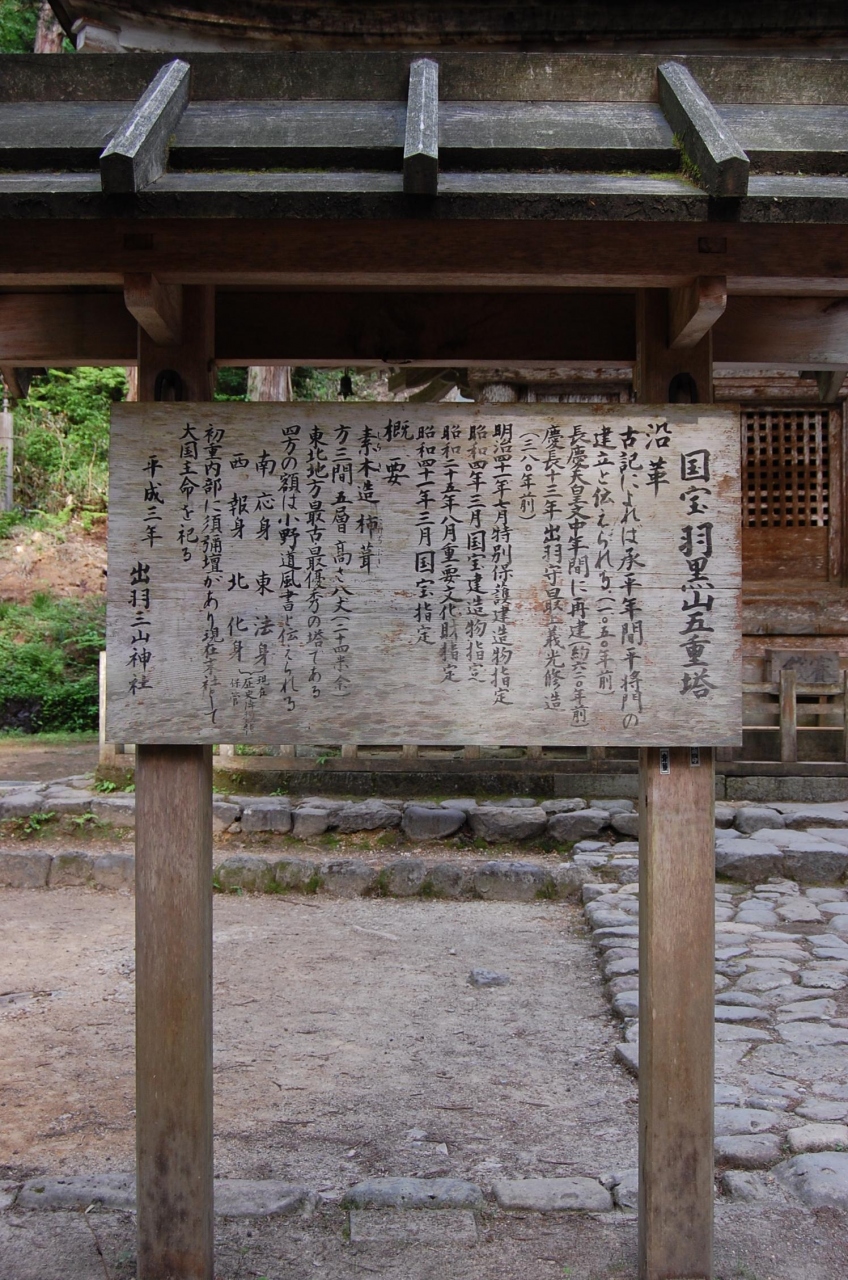 国宝 羽黒山五重塔
沿革
古記によれは承平年間平将門の
建立と伝えられる(一〇五〇年前)
長慶天皇文中年間に再建(約六一〇年前)
慶長十三年 出羽守最上義光修造
(三八〇年前)
明治四十一年七月特別保護建造物指定
昭和四年三月国宝建造物指定
昭和二十五年八月重要文化財指定
昭和四十一年三月国宝指定
概要
素木造 杮葺
方三間 五層 高さ八丈(二十四米余)
東北地方最古最優秀の塔である
四方の額は小野道風書と伝えられる
南 応身 東 法身
西 報身 北 化身
初重内部に須彌壇があり現在末社として
大国主命を祀る
平成三年 出羽三山神社